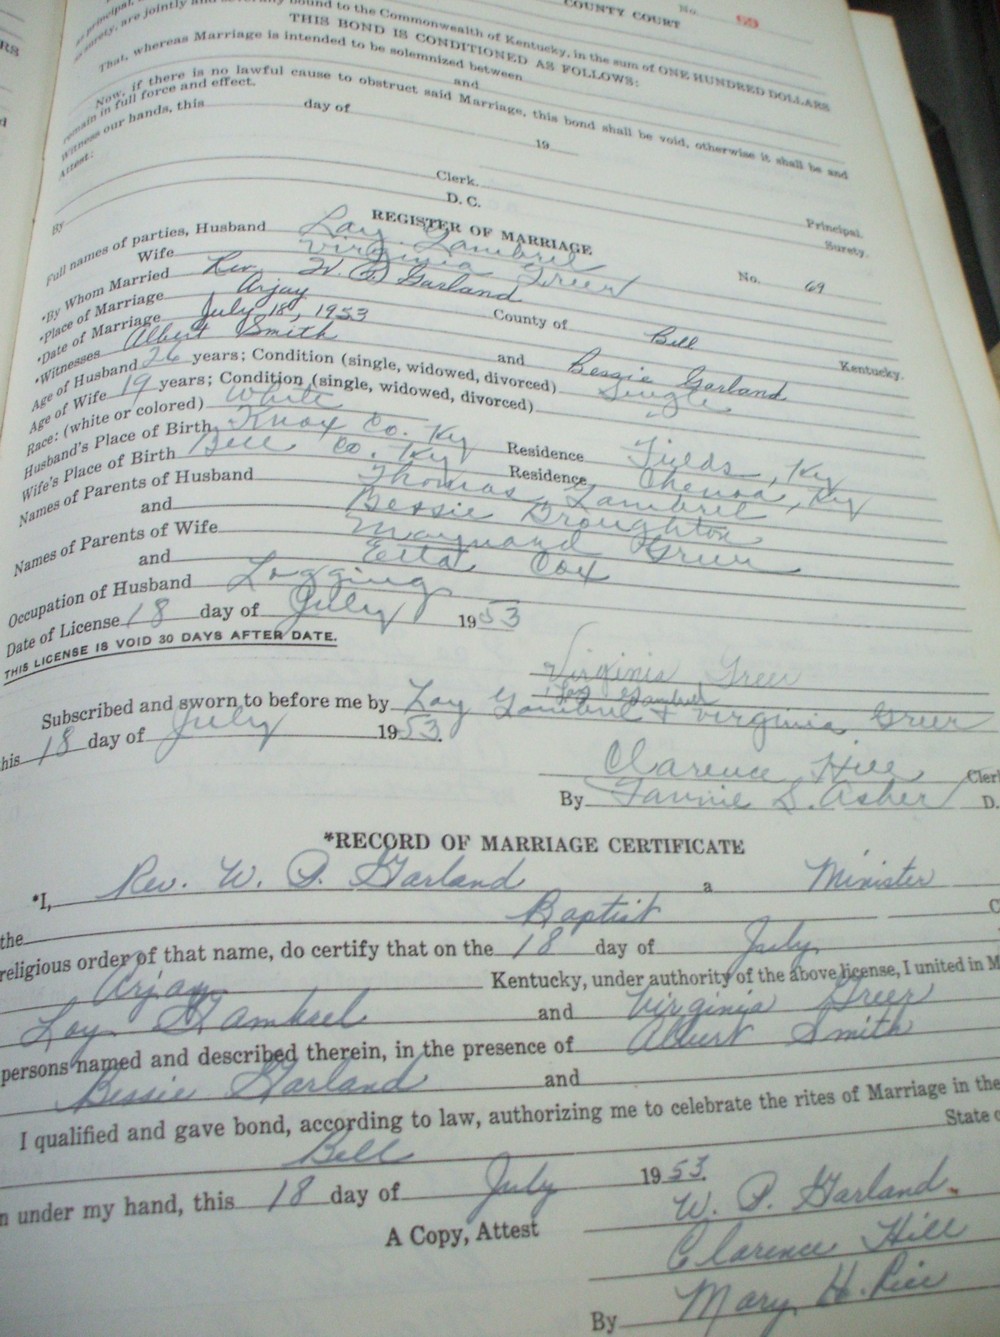 COUNTY COURT No. 69
as surety, are jointly and severally bound to the Commonwealth of Kentucky, in the sum of ONE HUNDRED DOLLARS
THIS BOND IS CONDITIONED AS FOLLOWS:
That, whereas Marriage is intended to be solemnized between
and
Now, if there is no lawful cause to obstruct said Marriage, this bond shall be void, otherwise it shall be and
remain in full force and effect.
Witness our hands, this day of 19
Attest:
Clerk. Principal.
By D. C. Surety.
REGISTER OF MARRIAGE
No. 69
Full names of parties, Husband Loy Gambrel
Wife Virginia Greer
*By Whom Married Rev. W. P. Garland
*Place of Marriage Arjay County of Bell Kentucky.
*Date of Marriage July 18, 1953
*Witnesses Albert Smith and Bessie Garland
Age of Husband 26 years; Condition (single, widowed, divorced) Single
Age of Wife 19 years; Condition (single, widowed, divorced)
Race: (white or colored) White
Husband's Place of Birth Knox Co. Ky Residence Fields, Ky
Wife's Place of Birth Bell Co. Ky Residence Chenoa, Ky
Names of Parents of Husband Thomas Gambrel
and Bessie Broughton
Names of Parents of Wife Maynard Greer
and Etta Cox
Occupation of Husband Logging
Date of License 18 day of July 1953
THIS LICENSE IS VOID 30 DAYS AFTER DATE.
Virginia Greer
Loy Gambrel
Subscribed and sworn to before me by Loy Gambrel + Virginia Greer
this 18 day of July 1953.
Clarence Hill Clerk
By Fannie S. Asher D.
*RECORD OF MARRIAGE CERTIFICATE
*I, Rev. W. P. Garland a Minister
the Baptist C
religious order of that name, do certify that on the 18 day of July
Arjay Kentucky, under authority of the above license, I united in M
Loy Gambrel and Virginia Greer
persons named and described therein, in the presence of Albert Smith
Bessie Garland and
I qualified and gave bond, according to law, authorizing me to celebrate the rites of Marriage in the
Bell State o
n under my hand, this 18 day of July 1953.
W. P. Garland
A Copy, Attest Clarence Hill
By Mary H. Rice